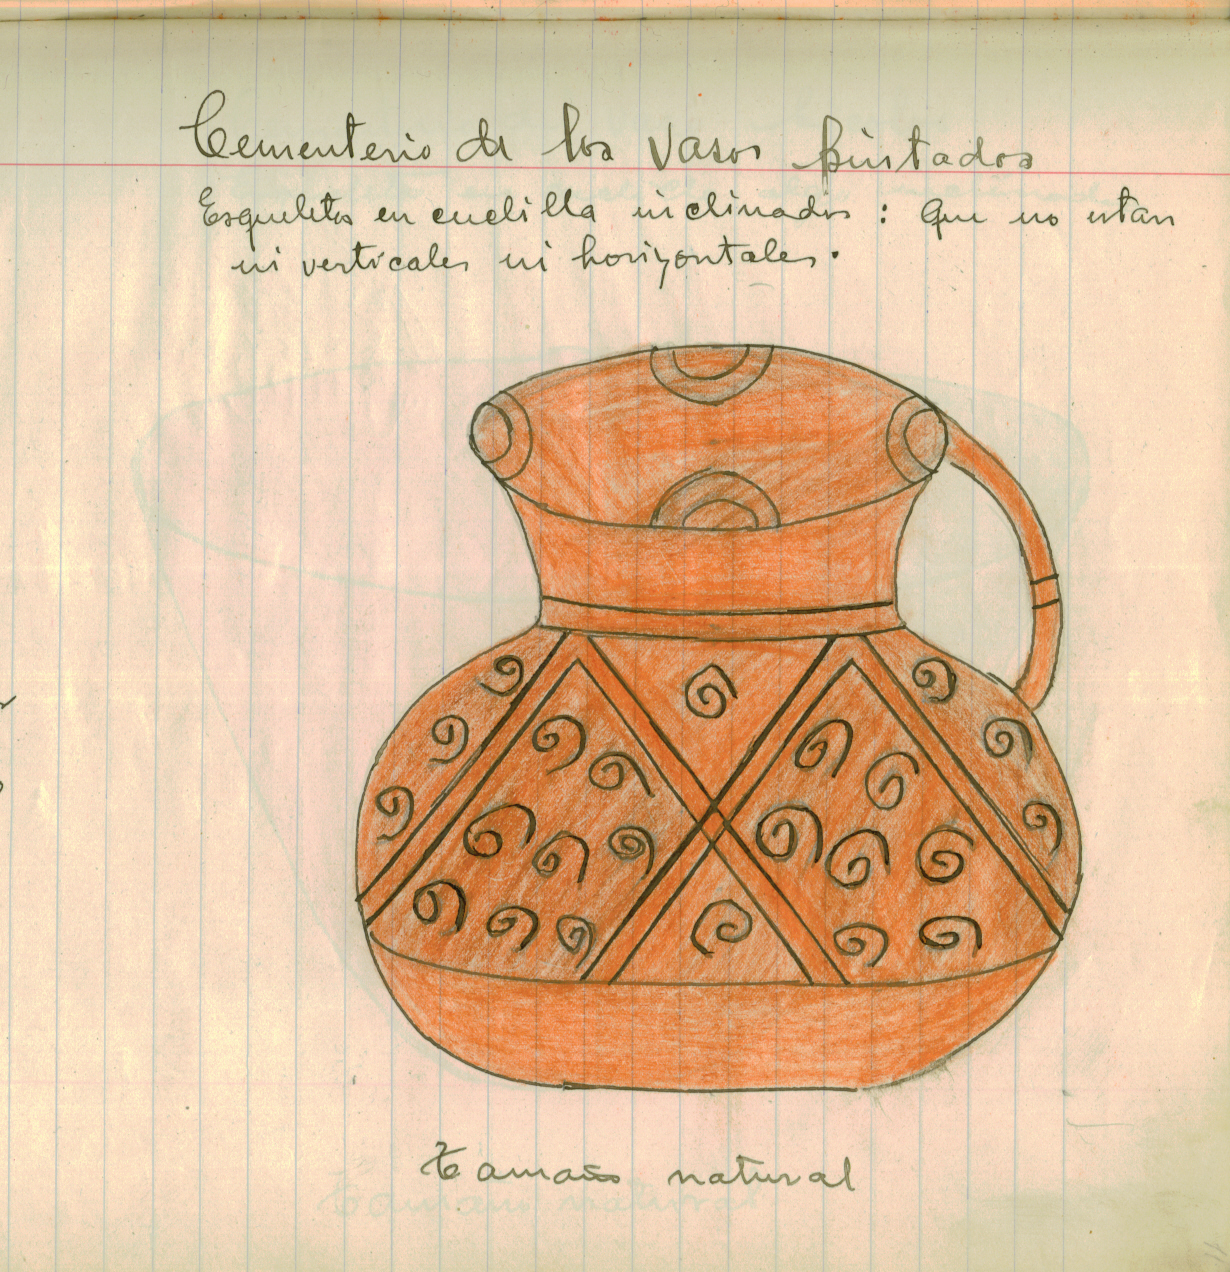 Cementerio de los vasos pintados
Esqueletos en cuclilla inclinados : Que no estan
ni verticales ni horizontales.
Tamaño natural